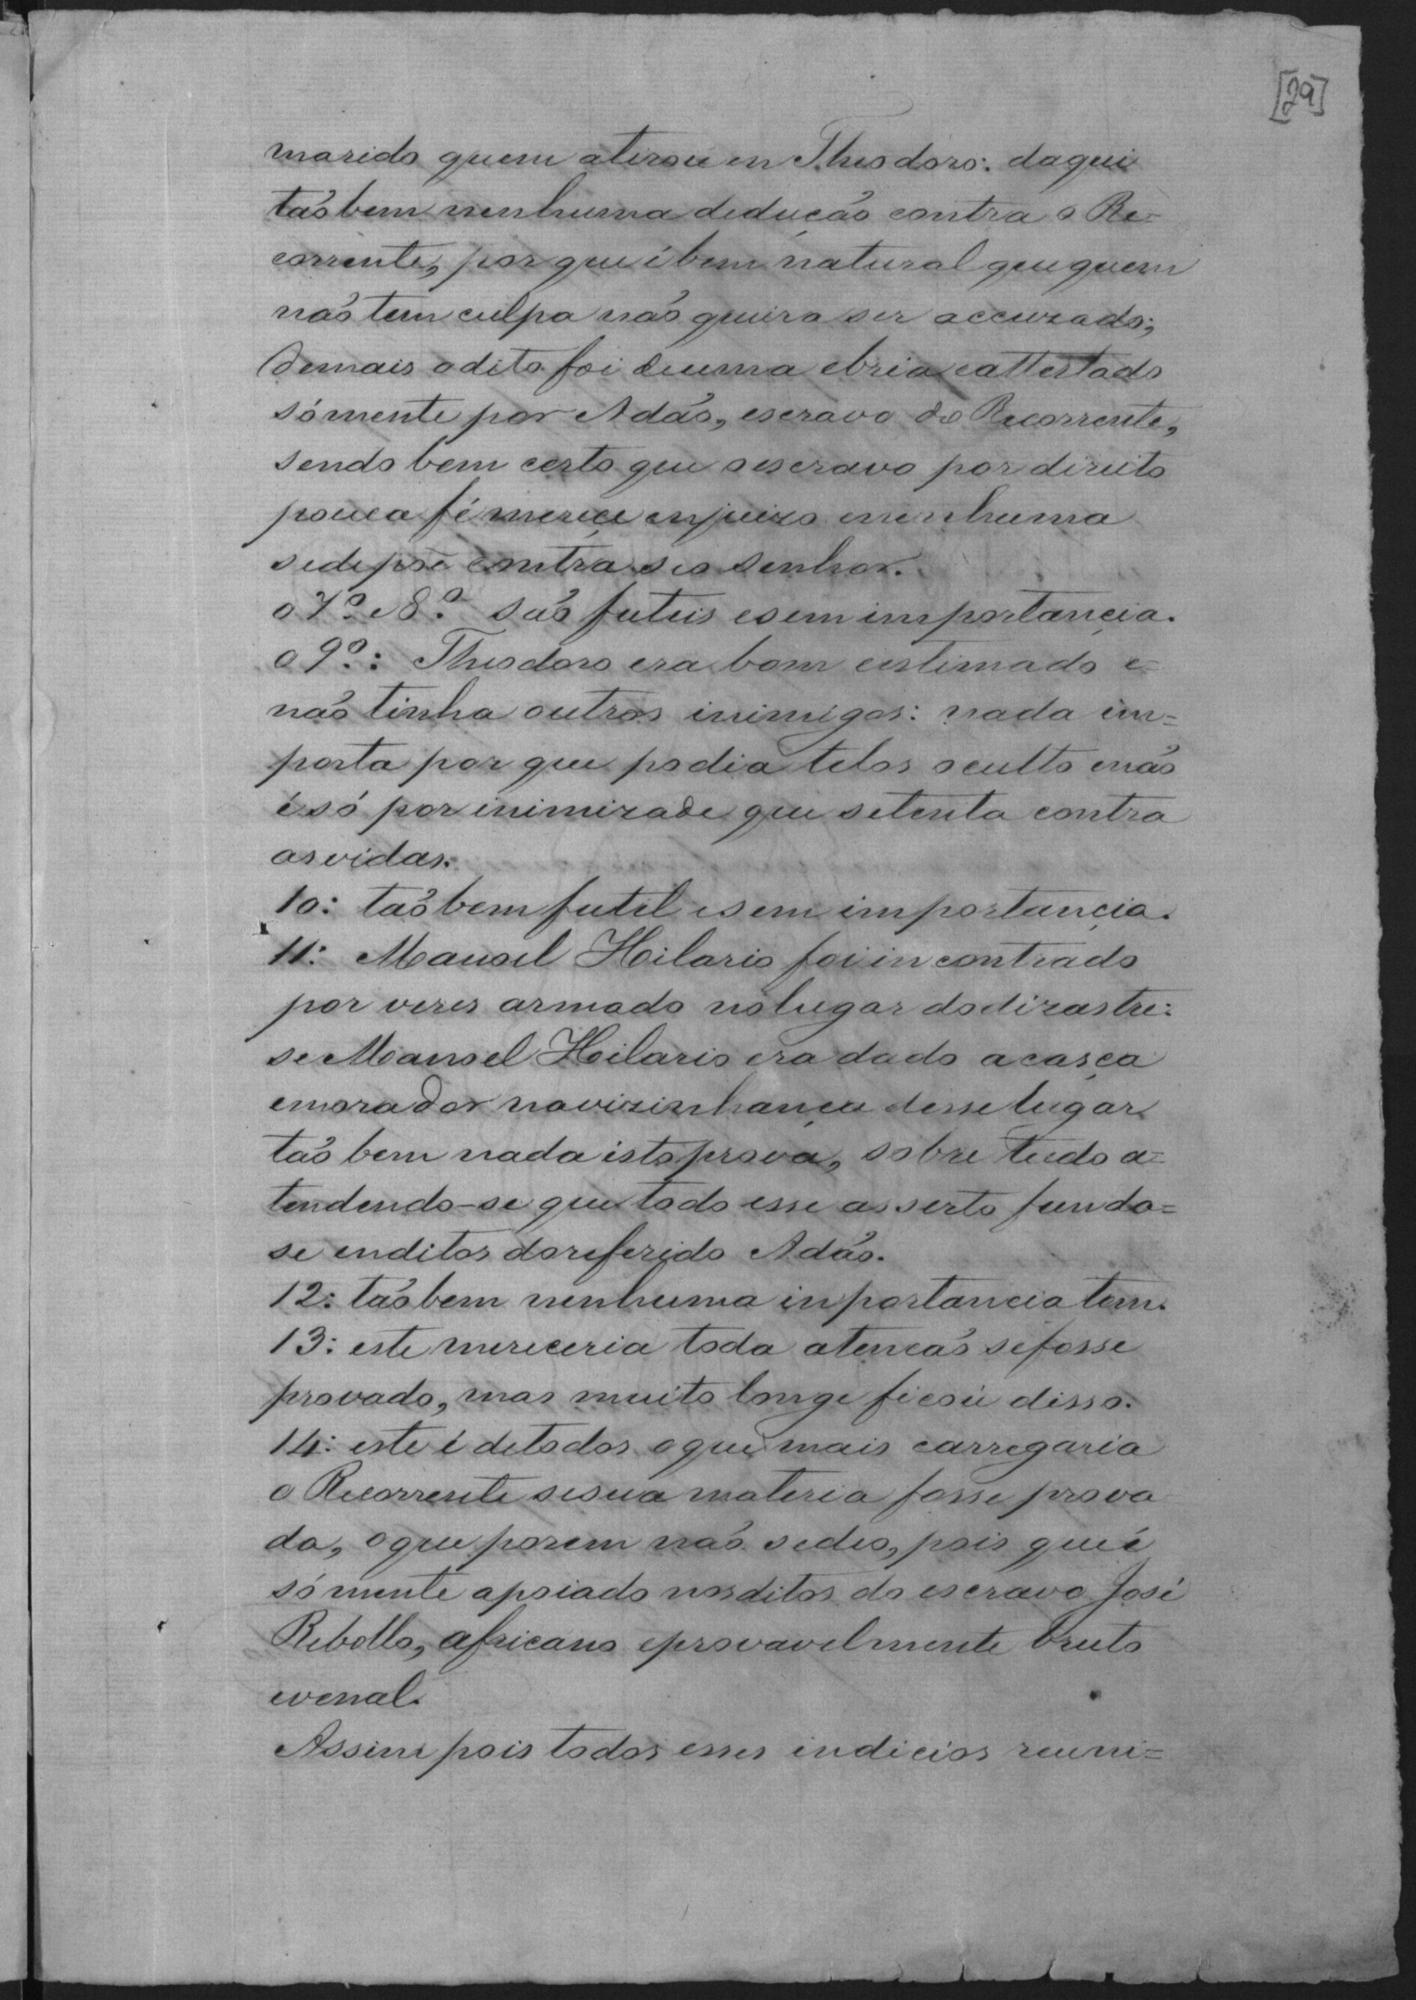 [29]
marido quem atirou em Theodoro: daqui
tãobem nenhuma dedução contra o Re=
corrente, porque é bem natural que quem
não tem culpa não queira ser accuzado;
demais o dito foi de uma ebria e attestado
sómente por Adão, escravo do Recorrente,
sendo bem certo que o escravo por direito
pouca fé mereçe em juizo e nenhuma
se depõe contra seo senhor.
o 7º e 8º são futeis e sem importançia.
o 9º: Theodoro era bom e estimado e=
não tinha outros inimigos: nada im=
porta por que podia telos oculto e não
é só por inimizade que se tenta contra
as vidas.
10: tãobem futil e sem importançia.
11: Manoel Hilario foi incontrado
por vezes armado no lugar do dizastre:
se Manoel Hilario era dado a casça
e morador na vizinhança desse lugar
tãobem nada isto prova, sobre tudo a=
tendendo-se que todo esse asserto funda=
se em ditos do referido Adão.
12: tãobem nenhuma inportancia tem.
13: este mereceria toda atencão se fosse
provado, mas muito longe ficou disso.
14: este é de todos o que mais carregaria
o Recorrente se sua materia fosse prova
da, o que porem não se deo, pois que é
sómente apoiado nos ditos do escravo José
Rebollo, africano e provavelmente bruto
e venal.
Assim pois todos esses indicios reuni=